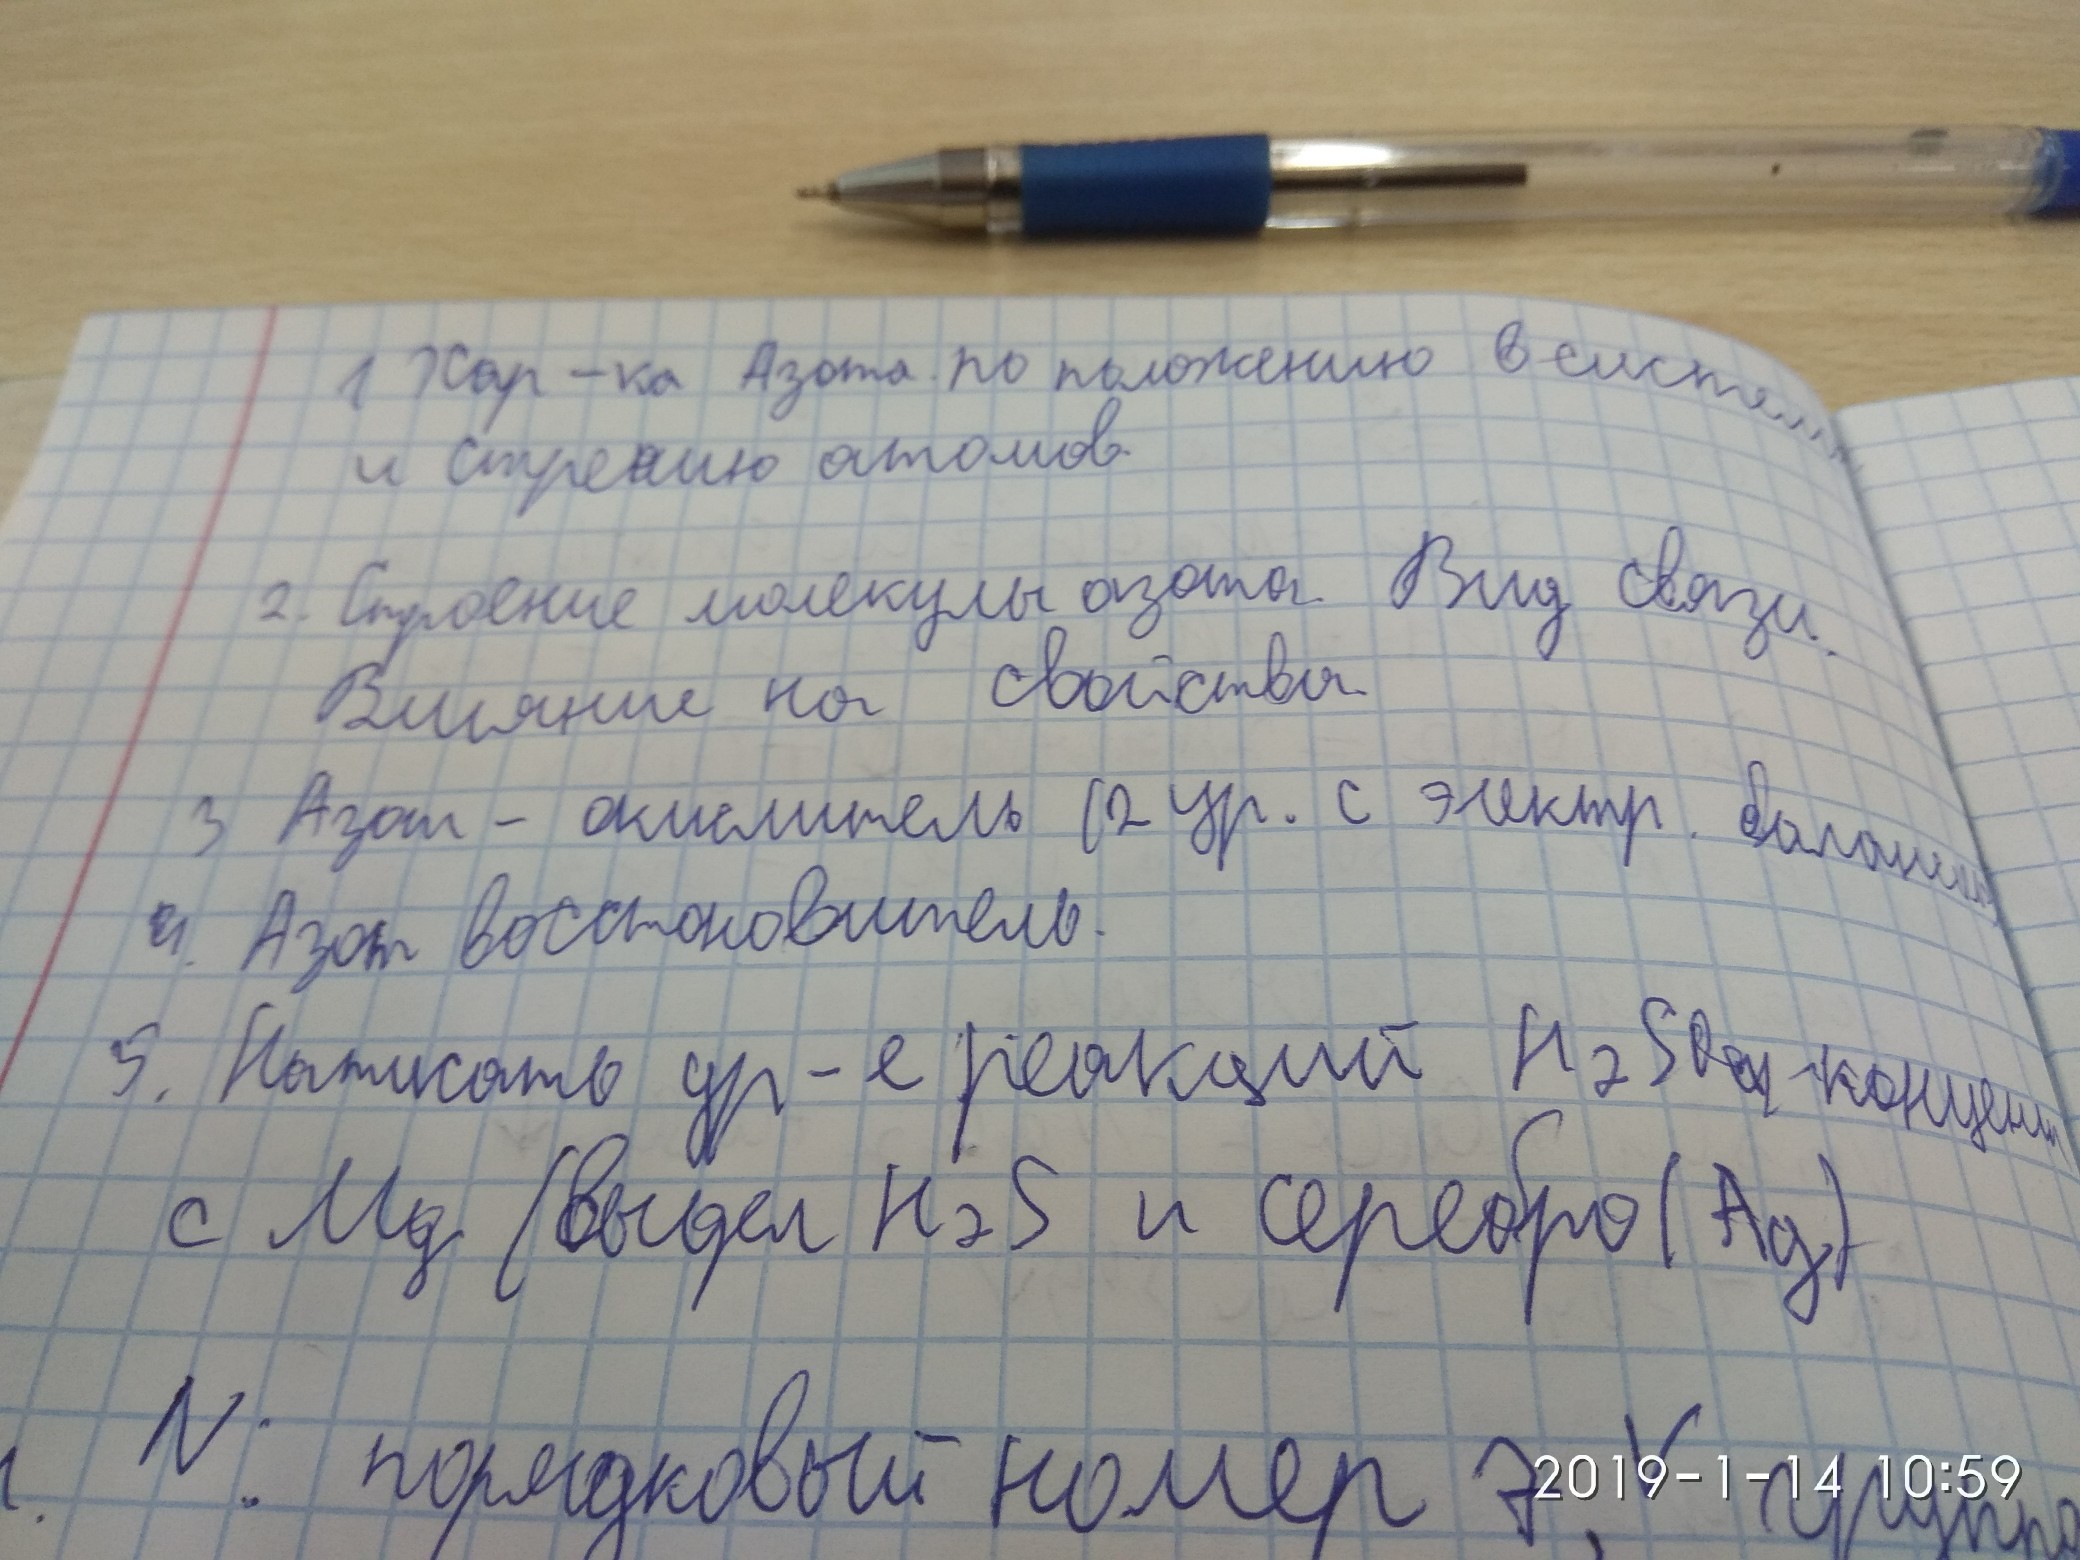 1 Хар-ка Азота по положению в системе
и стрению атомов
2. Строение молекулы азота. Вид связи.
Влияние на свойства
3 Азот - окислитель (2 ур. с электр. балансом
4. Азот восстановитель.
5. Написать ур-е реакций H2SO4-концент
с Mg (выдел H2S и серебро (Ag)
1. N: порядковый номер 7, V группа
2019-1-14 10:59